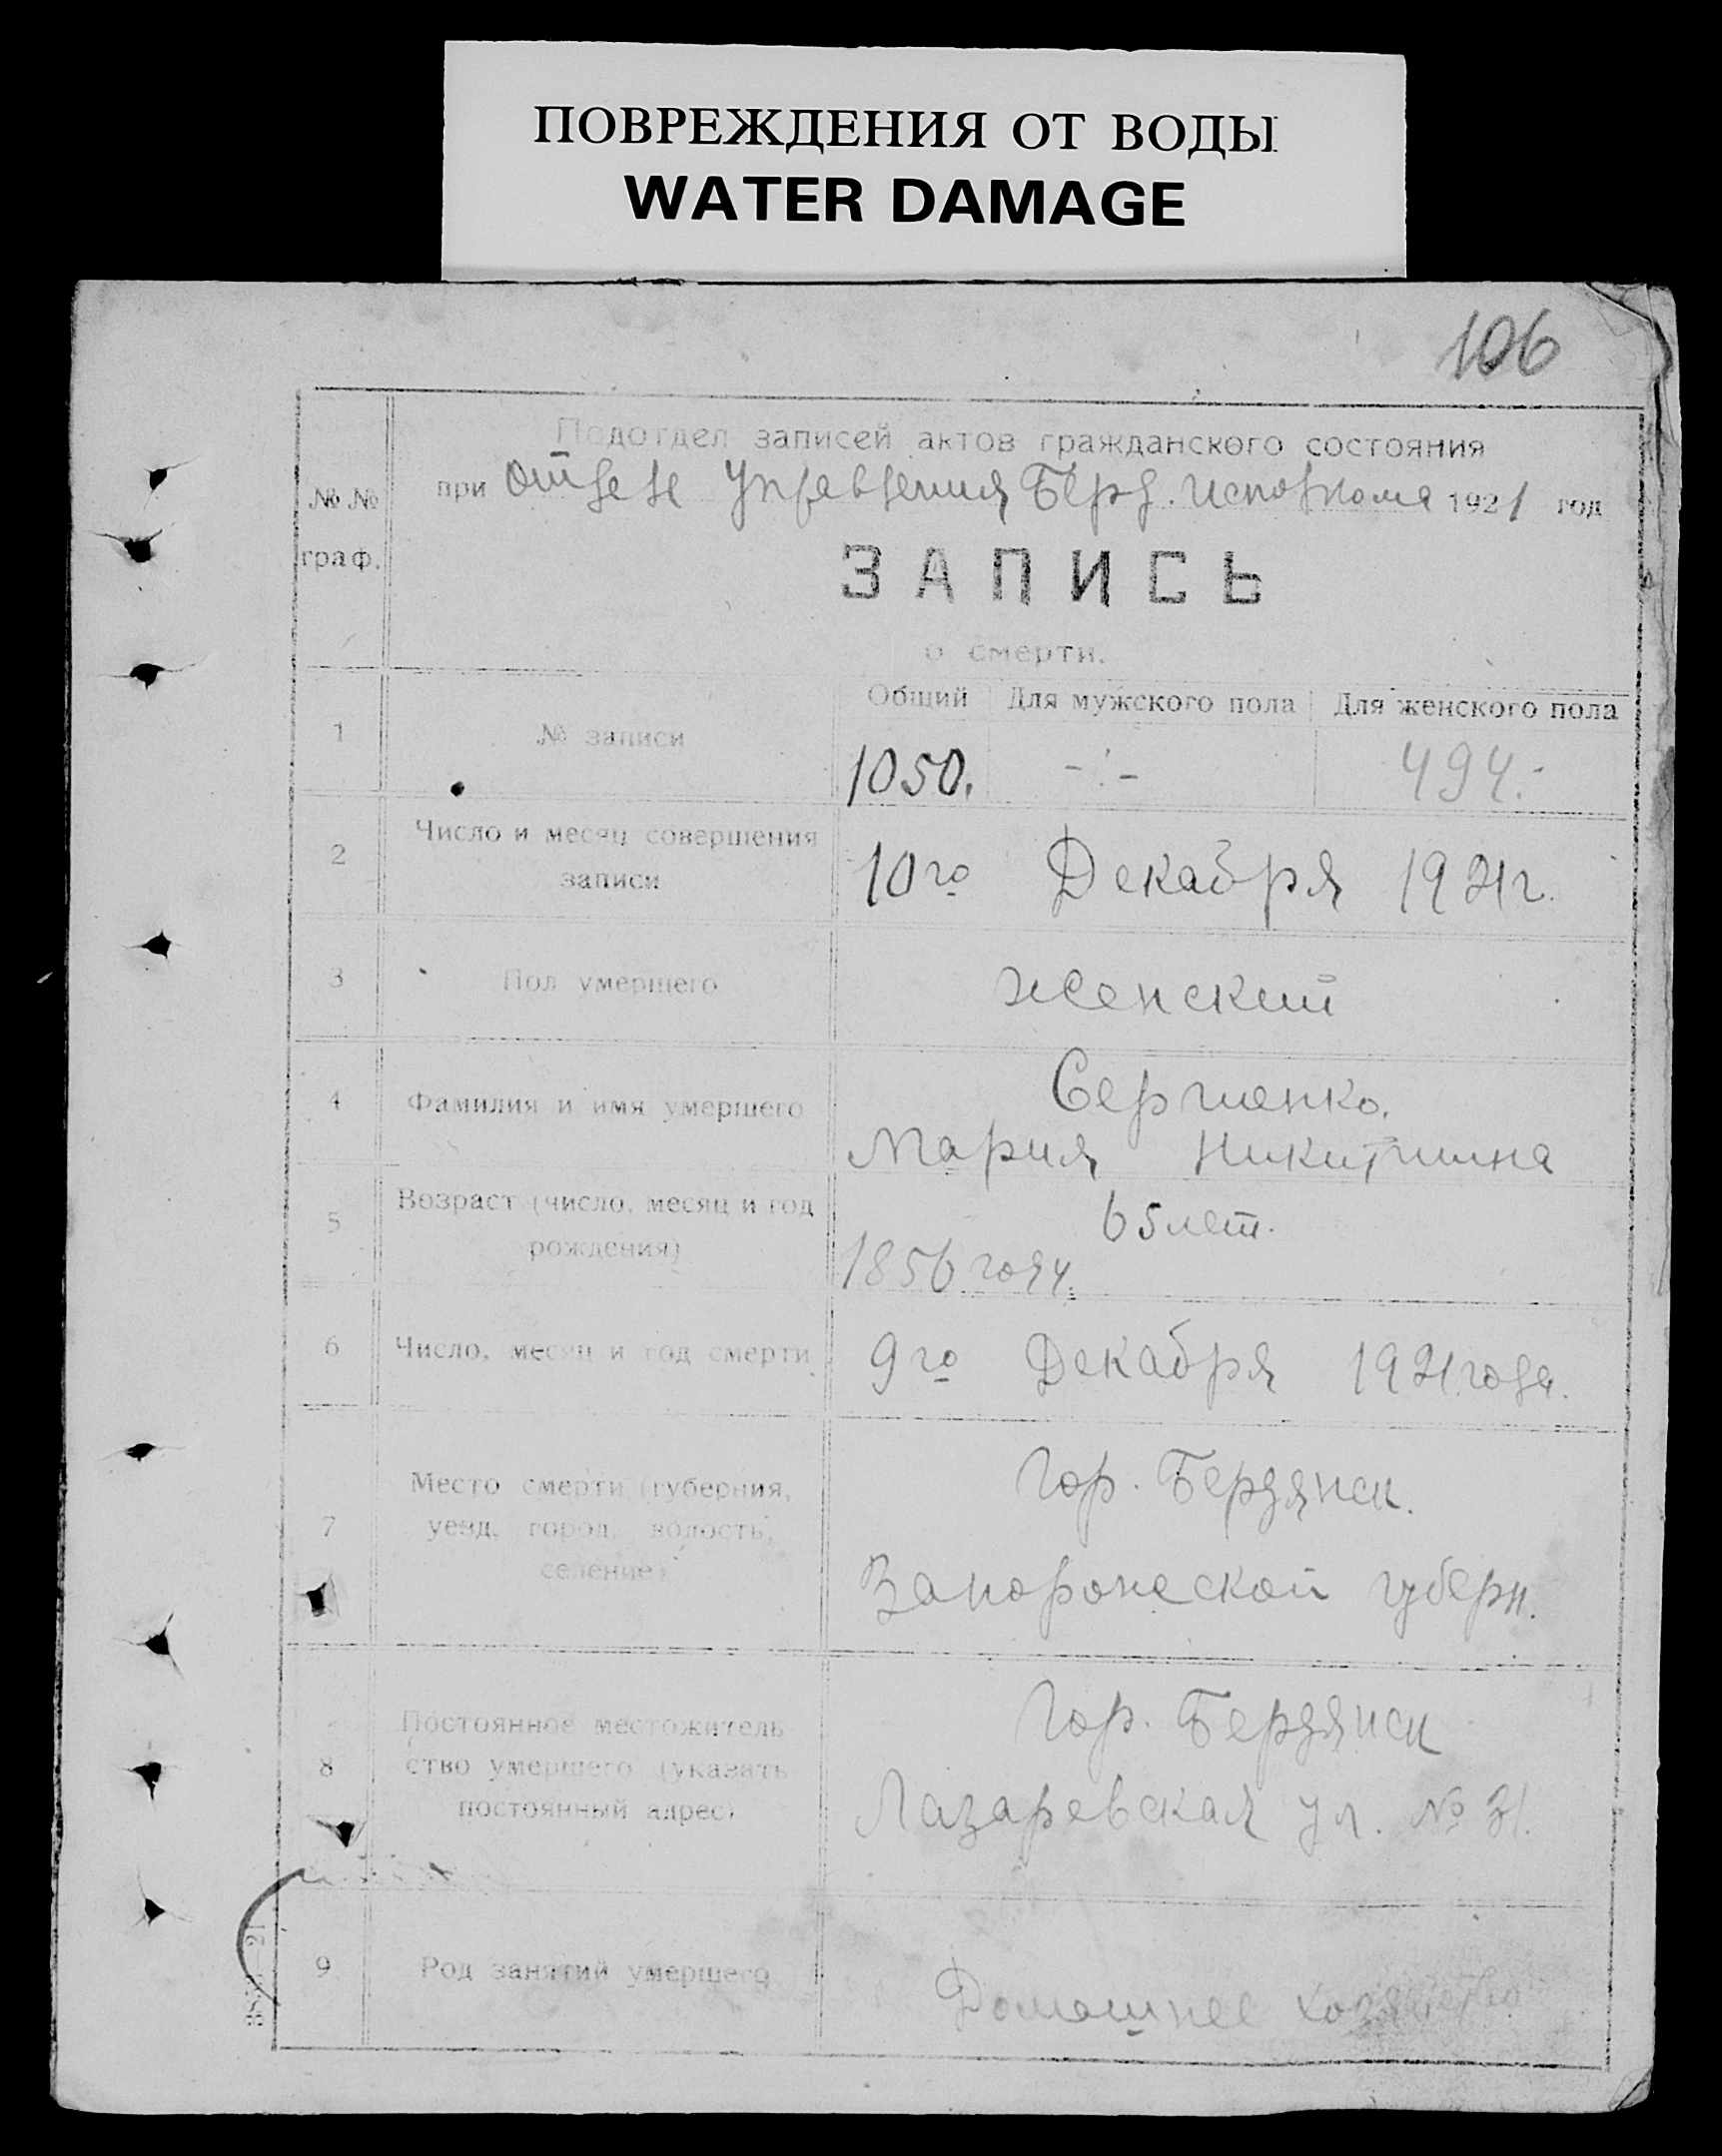 ПОВРЕЖДЕНИЯ ОТ ВОДЫ
WATER DAMAGE
106
№ №
граф.
Подотдел записей актов гражданского состояния
при отделе Управления Берд. исполкома 1921 год
ЗАПИСЬ
о смерти.
Общий Для мужского пола Для женского пола
1 № записи 1050. -:- 494.-
2 Число и месяц совершения
записи 10го Декабря 1921г.
3 Пол умершего женский
4 Фамилия и имя умершего Сергиенко,
Мария Никитишна
5 Возраст (число, месяц и год
рождения) 65 лет.
1856 году.
6 Число, месяц и год смерти 9го Декабря 1921 года.
7 Место смерти (губерния,
уезд, город, волость,
селение)
Гор. Бердянск.
Запорожской губерн.
8 Постоянное местожитель
ство умершего (указать
постоянный адрес)
Гор. Бердянск
Лазаревская ул. № 31.
9 Род занятий умершего Домашнее хозяйство